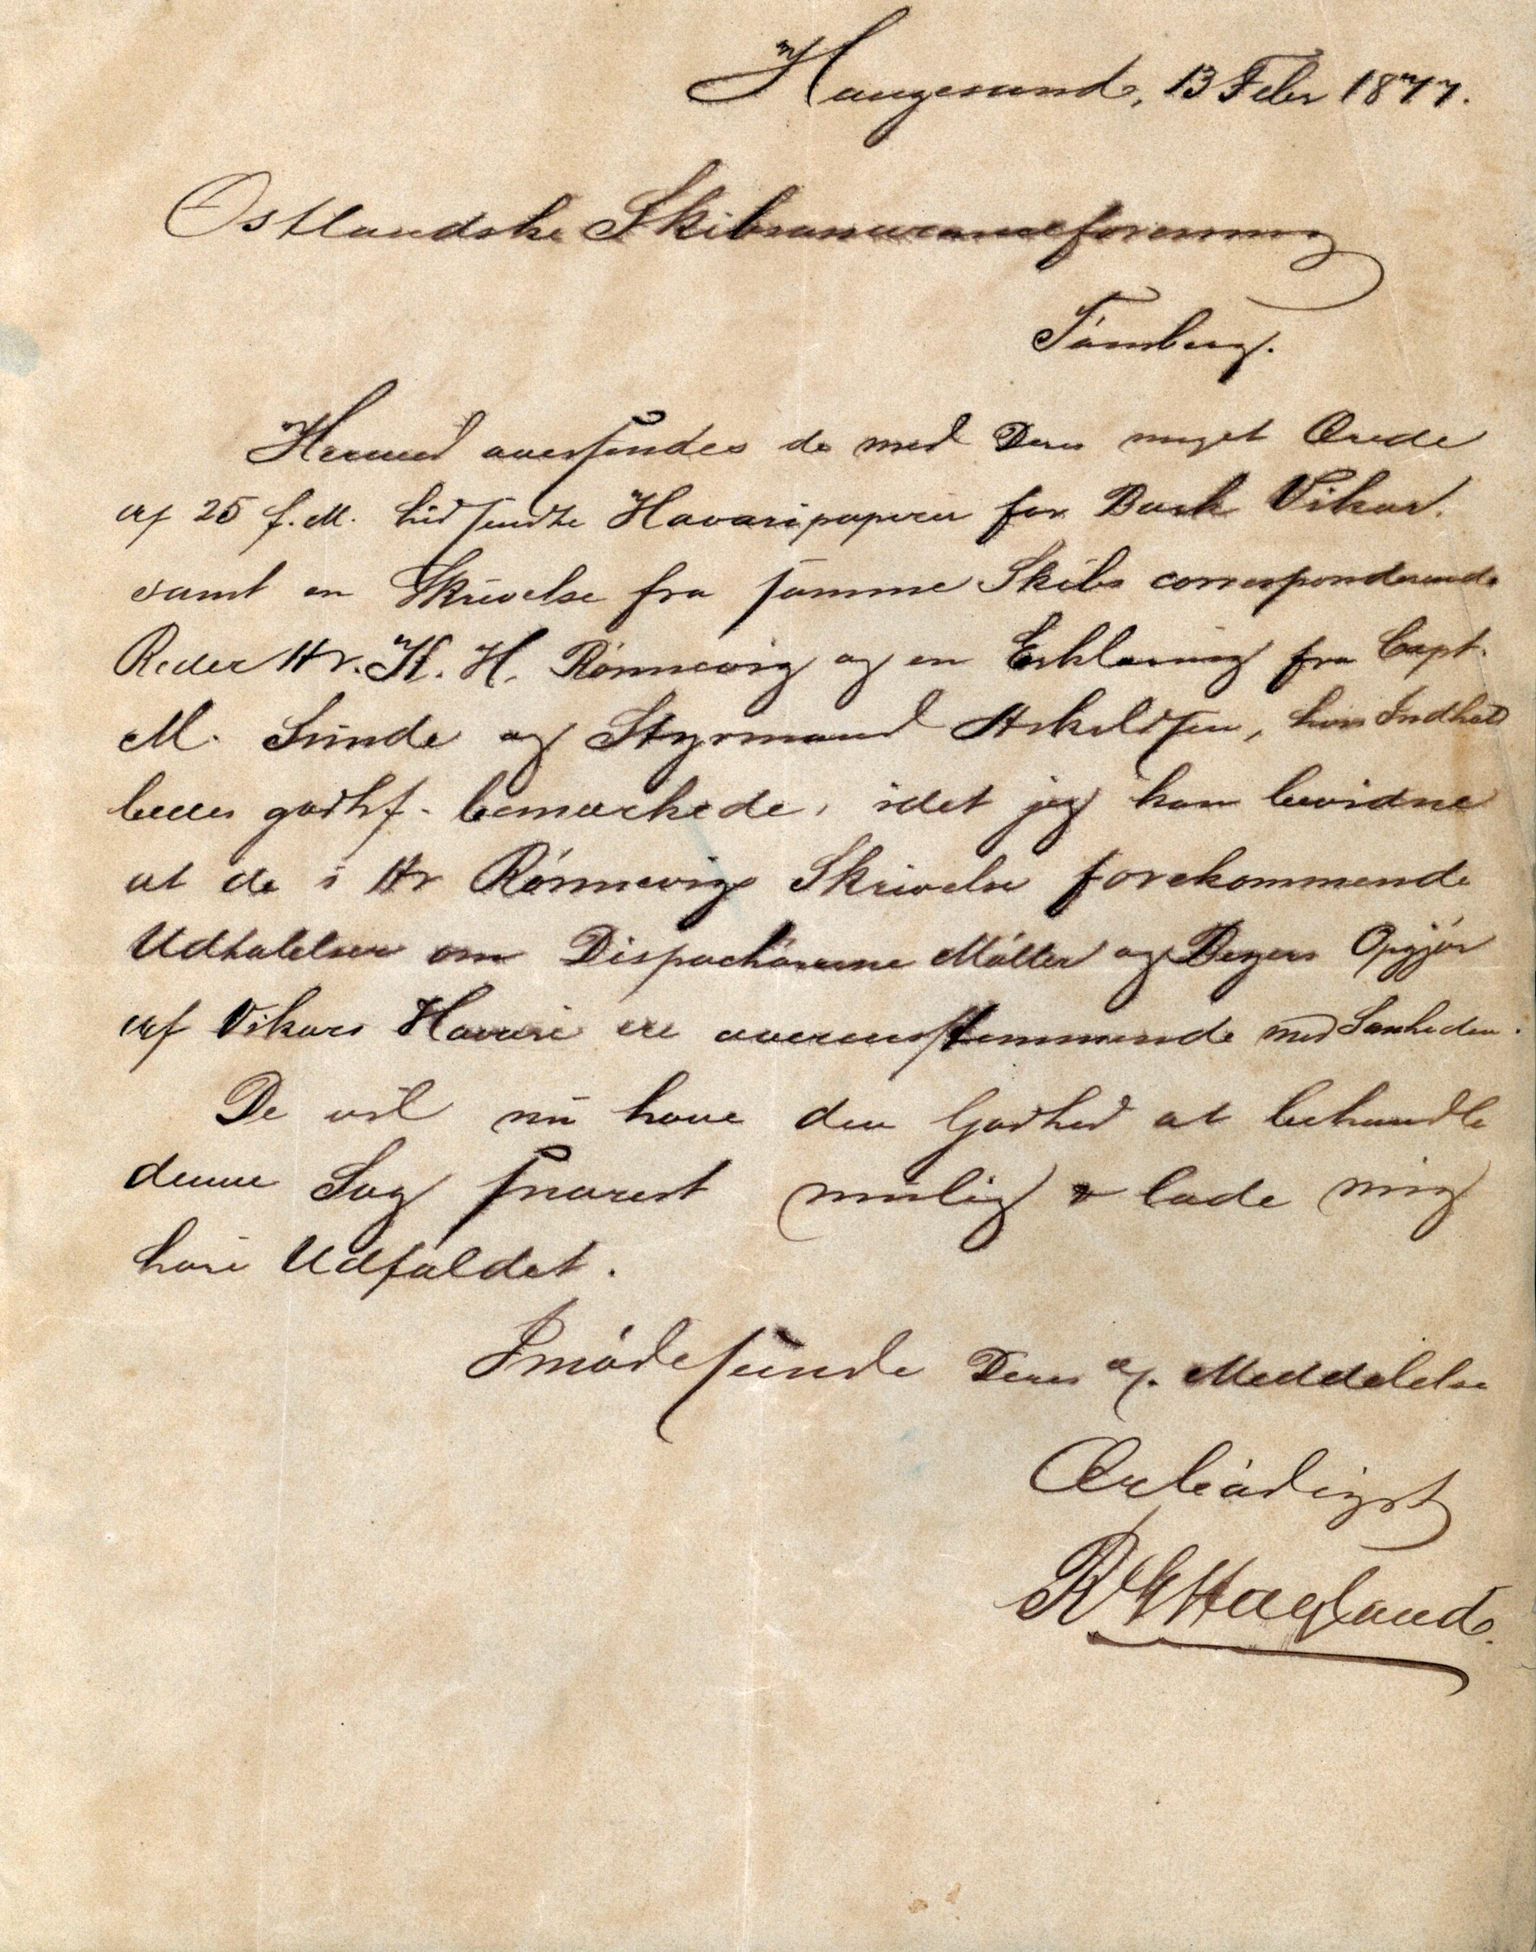 Haugesund, 13 Febr 1877.
Ostlandske Skibsassuranceforening
Tönsberg.
Hermed oversendes de med Deres meget Ærede
af 25 f. M. hidsendte Havaripapirer for Bark Vikar.
samt en Skrivelse fra samme Skibs corresponderende
Reder Hr. H. H. Rönnevig og en Erklæring fra Capt.
M. Sunde og Styrmand Askildsen, hvis Indhold
bedes godhf. bemærkede, idet jeg kan bevidne
at de i Hr Rönnevigs Skrivelse forekommende
Udtalelser om Dispachörerne Möller og Beyers Opgjör
af Vikars Havari ere overensstemmende med Sandheden.
De vil nu have den Godhed at behandle
denne Sag snarest mulig & lade mig
höre Udfaldet.
Imödeseende Deres æ. Meddelelse
Ærbödigst
R G Hagland.